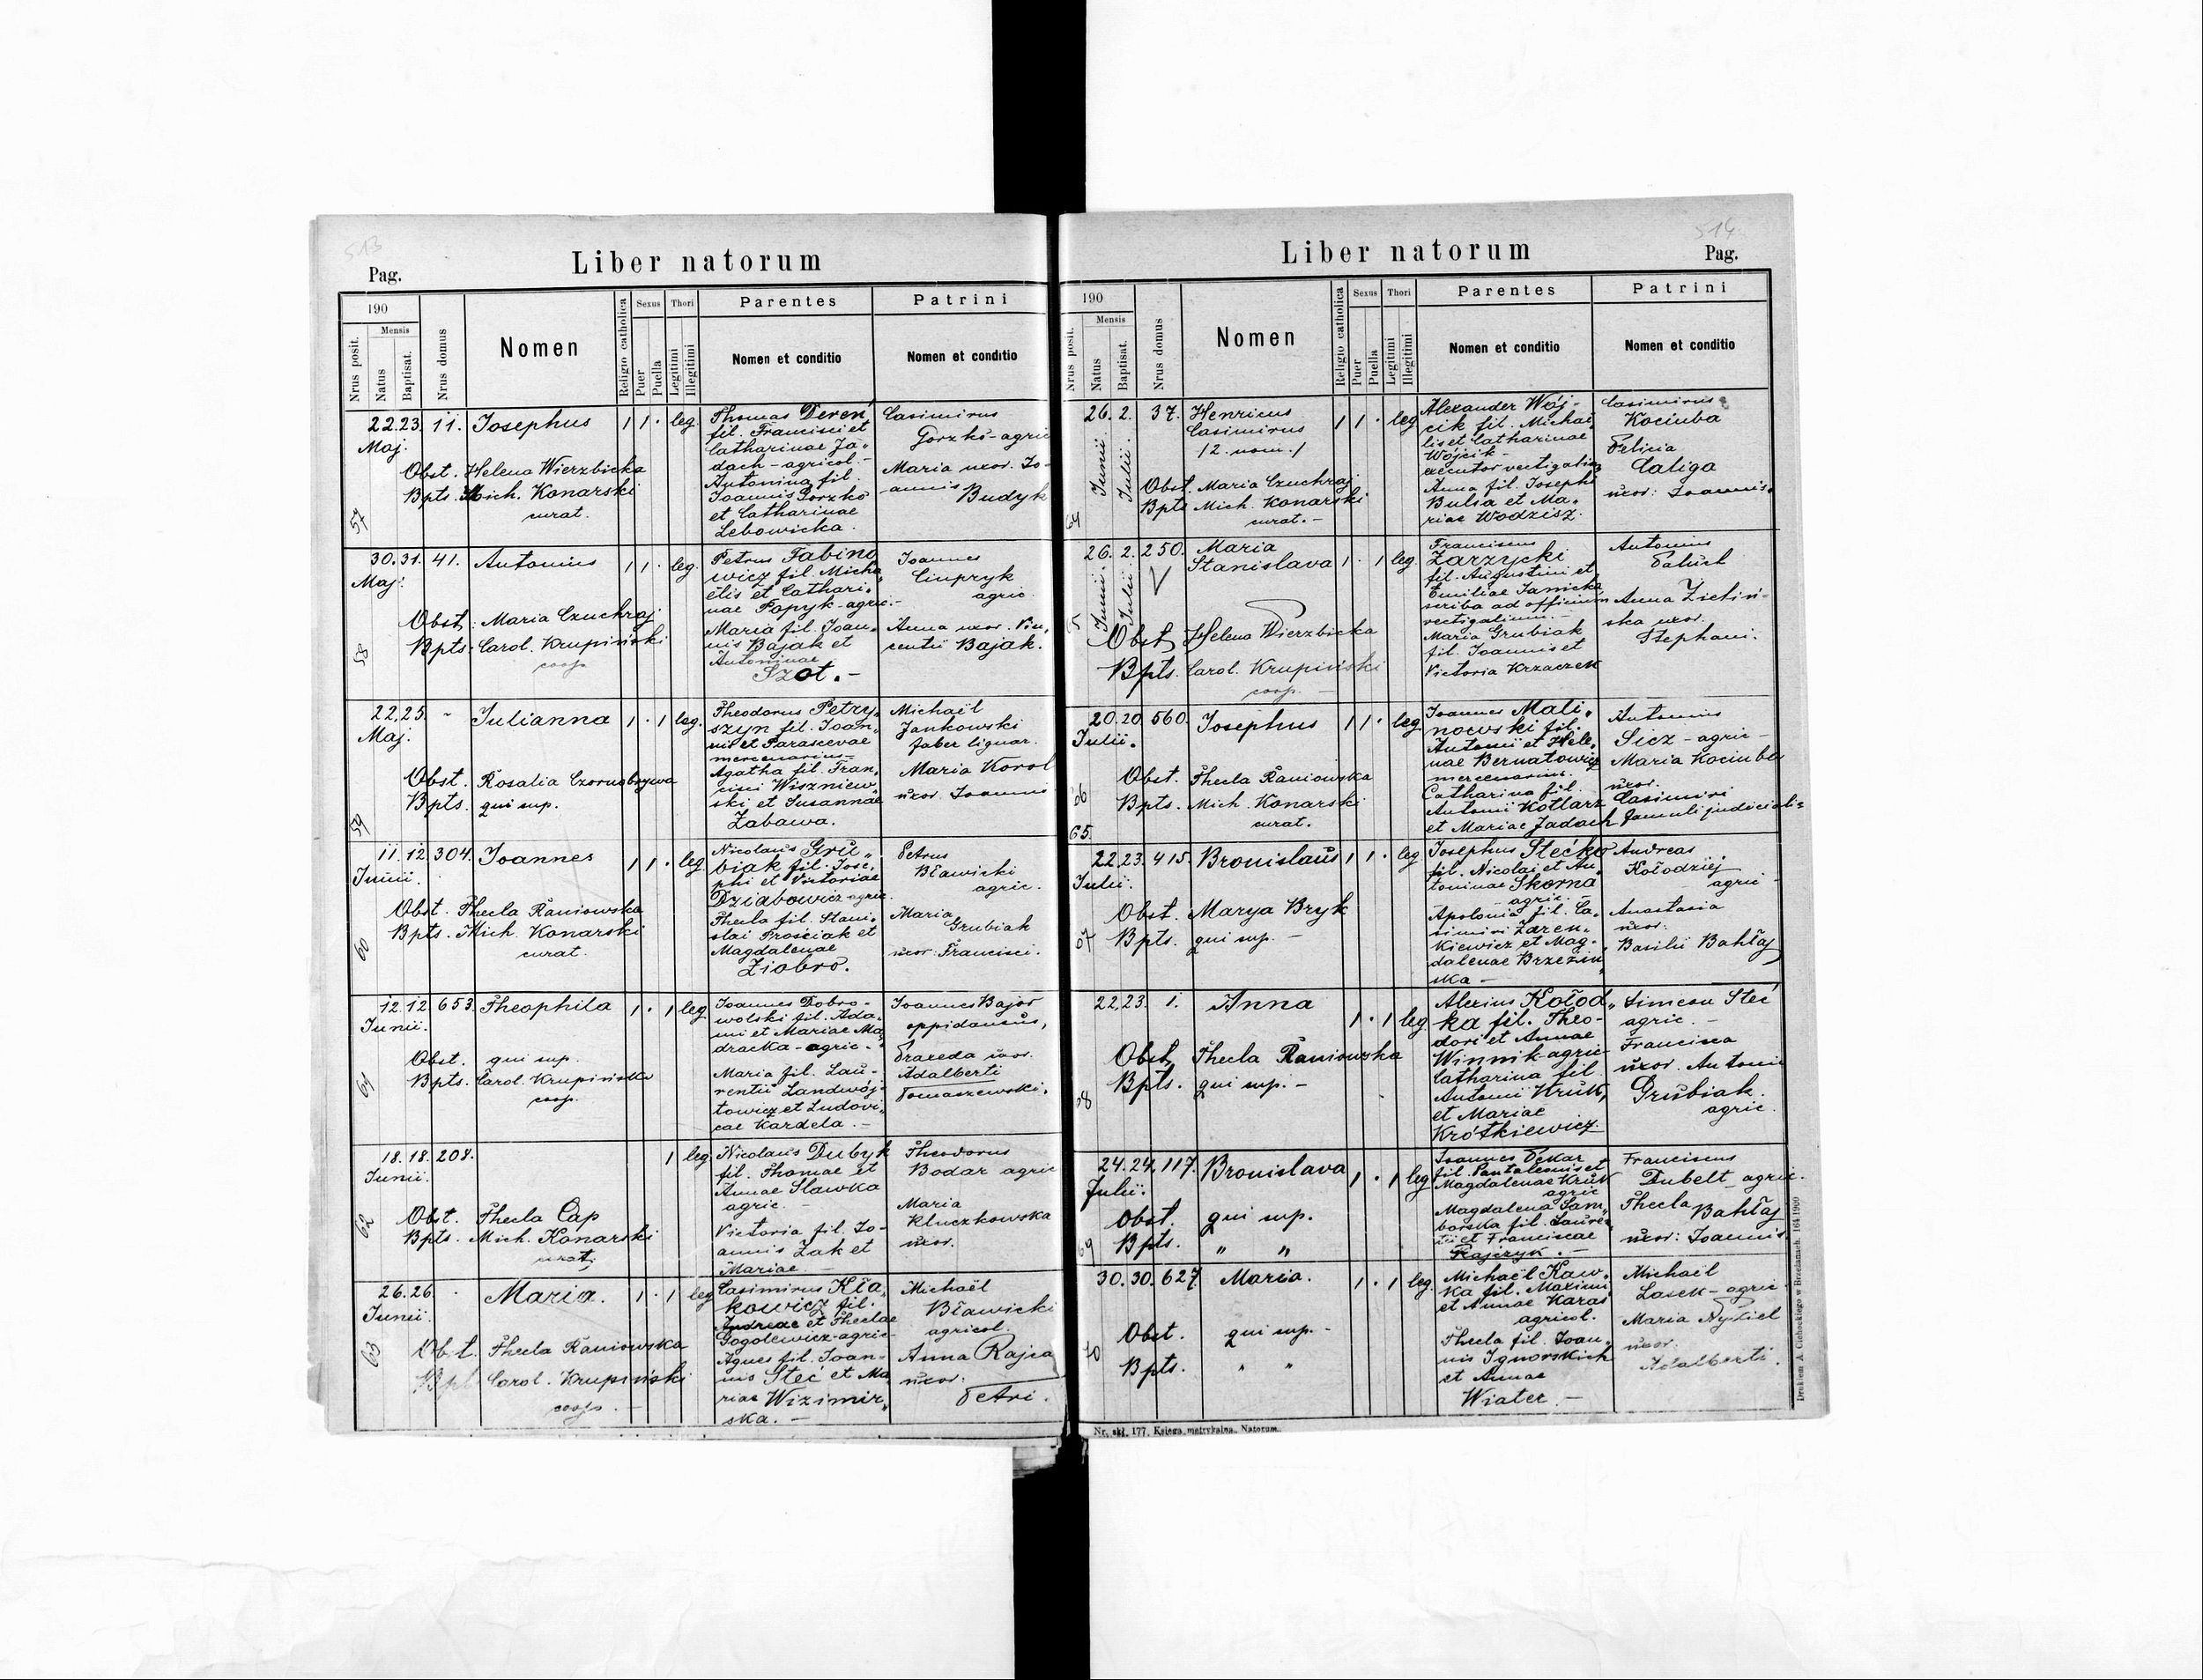 513
Liber natorum
Pag.
190
Mensis
Nrus posit.
Natus
Baptisat.
Nrus domus
Nomen
Religio catholica
Sexus
Puer
Puella
Thori
Legitimi
Illegitimi
Parentes
Nomen et conditio
Patrini
Nomen et conditio
57
22. 23. 11. Josephus 1 1 · leg.
Maj.
Obst. Helena Wierzbicka
Bpts. Mich. Konarski
curat.
Thomas Dereń
fil. Francisci et
Catharinae Ja„
dach - agricol. -
Antonina fil.
Joannis Gorzko
et Catharinae
Lebowicka.
Casimirus
Gorzko - agric
Maria uxor. Jo-
annis
Budyk
58
30. 31. 41. Antonius 1 1 · leg.
Maj.
Obst: Maria Czuchraj
Bpts: Carol. Krupiński
coop
Petrus Fabino
wicz fil. Micha„
ëlis et Cathari„
nae Popyk - agric. -
Maria fil. Joan„
nis Bajak et
Antoninae
Szot. -
Joannes
Ciupryk
agric
Anna uxor. Vin„
centii Bajak.
59
22. 25. - Julianna 1 · 1 leg.
Maj.
Obst. Rosalia Czornobrywa
Bpts. qui sup.
Theodorus Petry„
szyn fil. Joan„
nis et Parascevae
mercenarius -
Agatha fil. Fran„
cisci Wiszniew„
ski et Susannae
Zabawa.
Michaël
Jankowski
faber lignar.
Maria Korol
uxor Joannis
60
11. 12. 304. Joannes 1 1 · leg
Junii.
Obst. Thecla Raniowska
Bpts. Mich. Konarski
curat.
Nicolaus Gru„
biak fil. Jose„
phi et Victoriae
Dziabowicz agric.
Thecla fil. Stani„
slai Prościak et
Magdalenae
Ziobro.
Petrus
Bławicki
agric.
Maria
Grubiak
uxor: Francisci.
61
12. 12 653. Theophila 1 · 1 leg
Junii.
Obst. qui sup.
Bpts. Carol. Krupiński
coop.
Joannes Dobro-
wolski fil. Ada„
mi et Mariae Ma
dracka - agric -
Maria fil. Lau-
rentii Landwój
towicz et Ludovi„
cae Kardela. -
Joannes Bajor
oppidanus,
Praxeda uxor.
Adalberti
Tomaszewski.
62
18. 18. 208. 1 leg
Junii.
Obst. Thecla Cap
Bpts. Mich. Konarski
curat.
Nicolaus Dubyk
fil. Thomae et
Annae Slawka
agric. -
Victoria fil. Jo-
annis Zak et
Mariae -
Theodorus
Bodar agric
Maria
Kluczkowska
uxor.
63
26. 26. · Maria. 1 · 1 leg
Junii.
Obst. Thecla Raniowska
Bpt Carol. Krupiński
coop. -
Casimirus Kła„
kowicz fil.
Andreae et Theclae
Gogolewicz - agric -
Agnes fil. Joan-
nis Steć et Ma
riae Wizimir„
ska. -
Michaël
Bławicki
agricol.
Anna Rajca
uxor.
Petri.
514
Liber natorum
Pag.
190
Mensis
Nrus posit.
Natus
Baptisat.
Nrus domus
Nomen
Religio catholica
Sexus
Puer
Puella
Thori
Legitimi
Illegitimi
Parentes
Nomen et conditio
Patrini
Nomen et conditio
64
26. 2. 37. Henricus
Casimirus
/2. nom./ 1 1 · leg
Junii. Julii.
Obst. Maria Czuchraj
Bpts Mich. Konarski
curat. -
Alexander Wój-
cik fil. Michaë
lis et Catharinae
Wójcik -
executor vectigalium
Anna fil. Josephi
Bulsa et Ma„
riae Wodzisz.
Casimirus
Kociuba
Felicia
Caliga
uxor: Joannis.
26. 2. 250. Maria
Stanislava 1 · 1 leg
Junii. Julii.
Obst. Helena Wierzbicka
Bpts. Carol. Krupiński
coop. -
Franciscus
Zarzycki
fil. Augustini et
Emiliae Janicka
scriba ad officium
vectigalium. -
Maria Grubiak
fil. Joannis et
Victoria Krzaczek
Antonius
Paluch
Anna Zieliń-
ska uxor.
Stephani.
66
65.
20. 20 560. Josephus 1 1 · leg
Julii.
Obst. Thecla Raniowska
Bpts. Mich. Konarski
curat.
Joannes Mali„
nowski fil.
Antonii et Hele„
nae Bernatowicz
mercenarius.
Catharina fil.
Antonii Kotlarz
et Mariae Jadach
Antonius
Sicz - agric -
Maria Kociuba
uxor.
Casimiri
famuli judicialis
67
22. 23. 415. Bronislaus 1 1 · leg
Julii.
Obst. Marya Bryk
Bpts. qui sup. -
Josephus Stećko
fil. Nicolai et An„
toninae Skorna
- agric -
Apolonia fil. Ca„
simiri Zaren„
kiewicz et Mag-
dalenae Brzezin„
ska -
Andreas
Kołodziej
agric -
Anastasia
uxor:
Basilii Bahłaj
68
22. 23. 1. Anna 1 · 1 leg
Obst. Thecla Raniowska
Bpts. qui sup. -
Alexius Kołod„
ka fil. Theo-
dori et Annae
Winnik - agric -
Catharina fil
Antonii Kruk,
et Mariae
Krótkiewicz.
Simeon Steć
agric. -
Francisca
uxor. Antonii
Grubiak.
agric.
69
24. 24. 117. Bronislava 1 · 1 leg
Julii.
Obst. qui sup.
Bpts. „ „
Joannes Pekar
fil. Pantaleonis et
Magdalenae Kruk
agric
Magdalena Sam„
borska fil. Lauren
tii et Franciscae
Rajczyk. -
Franciscus
Dubelt agric.
Thecla Bahłaj
uxor: Joannis
70
30. 30. 627. Maria. 1 · 1 leg.
Obst. qui sup. -
Bpts. „ „
Michaël Kaw„
ka fil. Maximi
et Annae Karas
agricol.
Thecla fil. Joan„
nis Ignorskich
et Annae
Wiater -
Michaël
Lasek - agric
Maria Nykiel
uxor.
Adalberti.
Drukiem A. Cieheckiego w Brzeżanach. 164 1900
Nr. skł. 177. Księga metrykalna. Natorum.